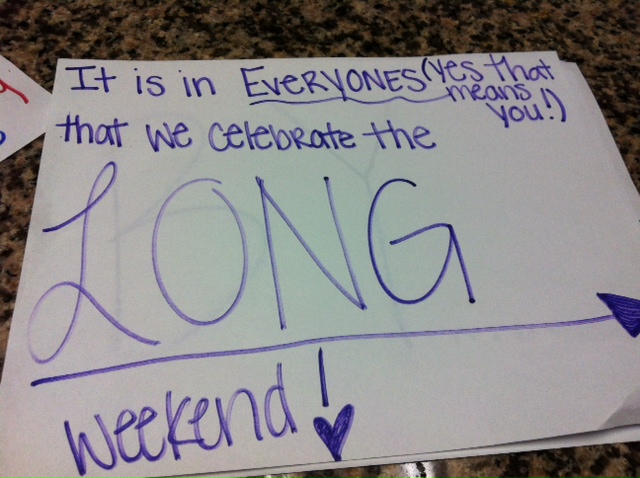 It is in EVERYONES (yes that
means
you!)
that we celebrate the
LONG
weekend!